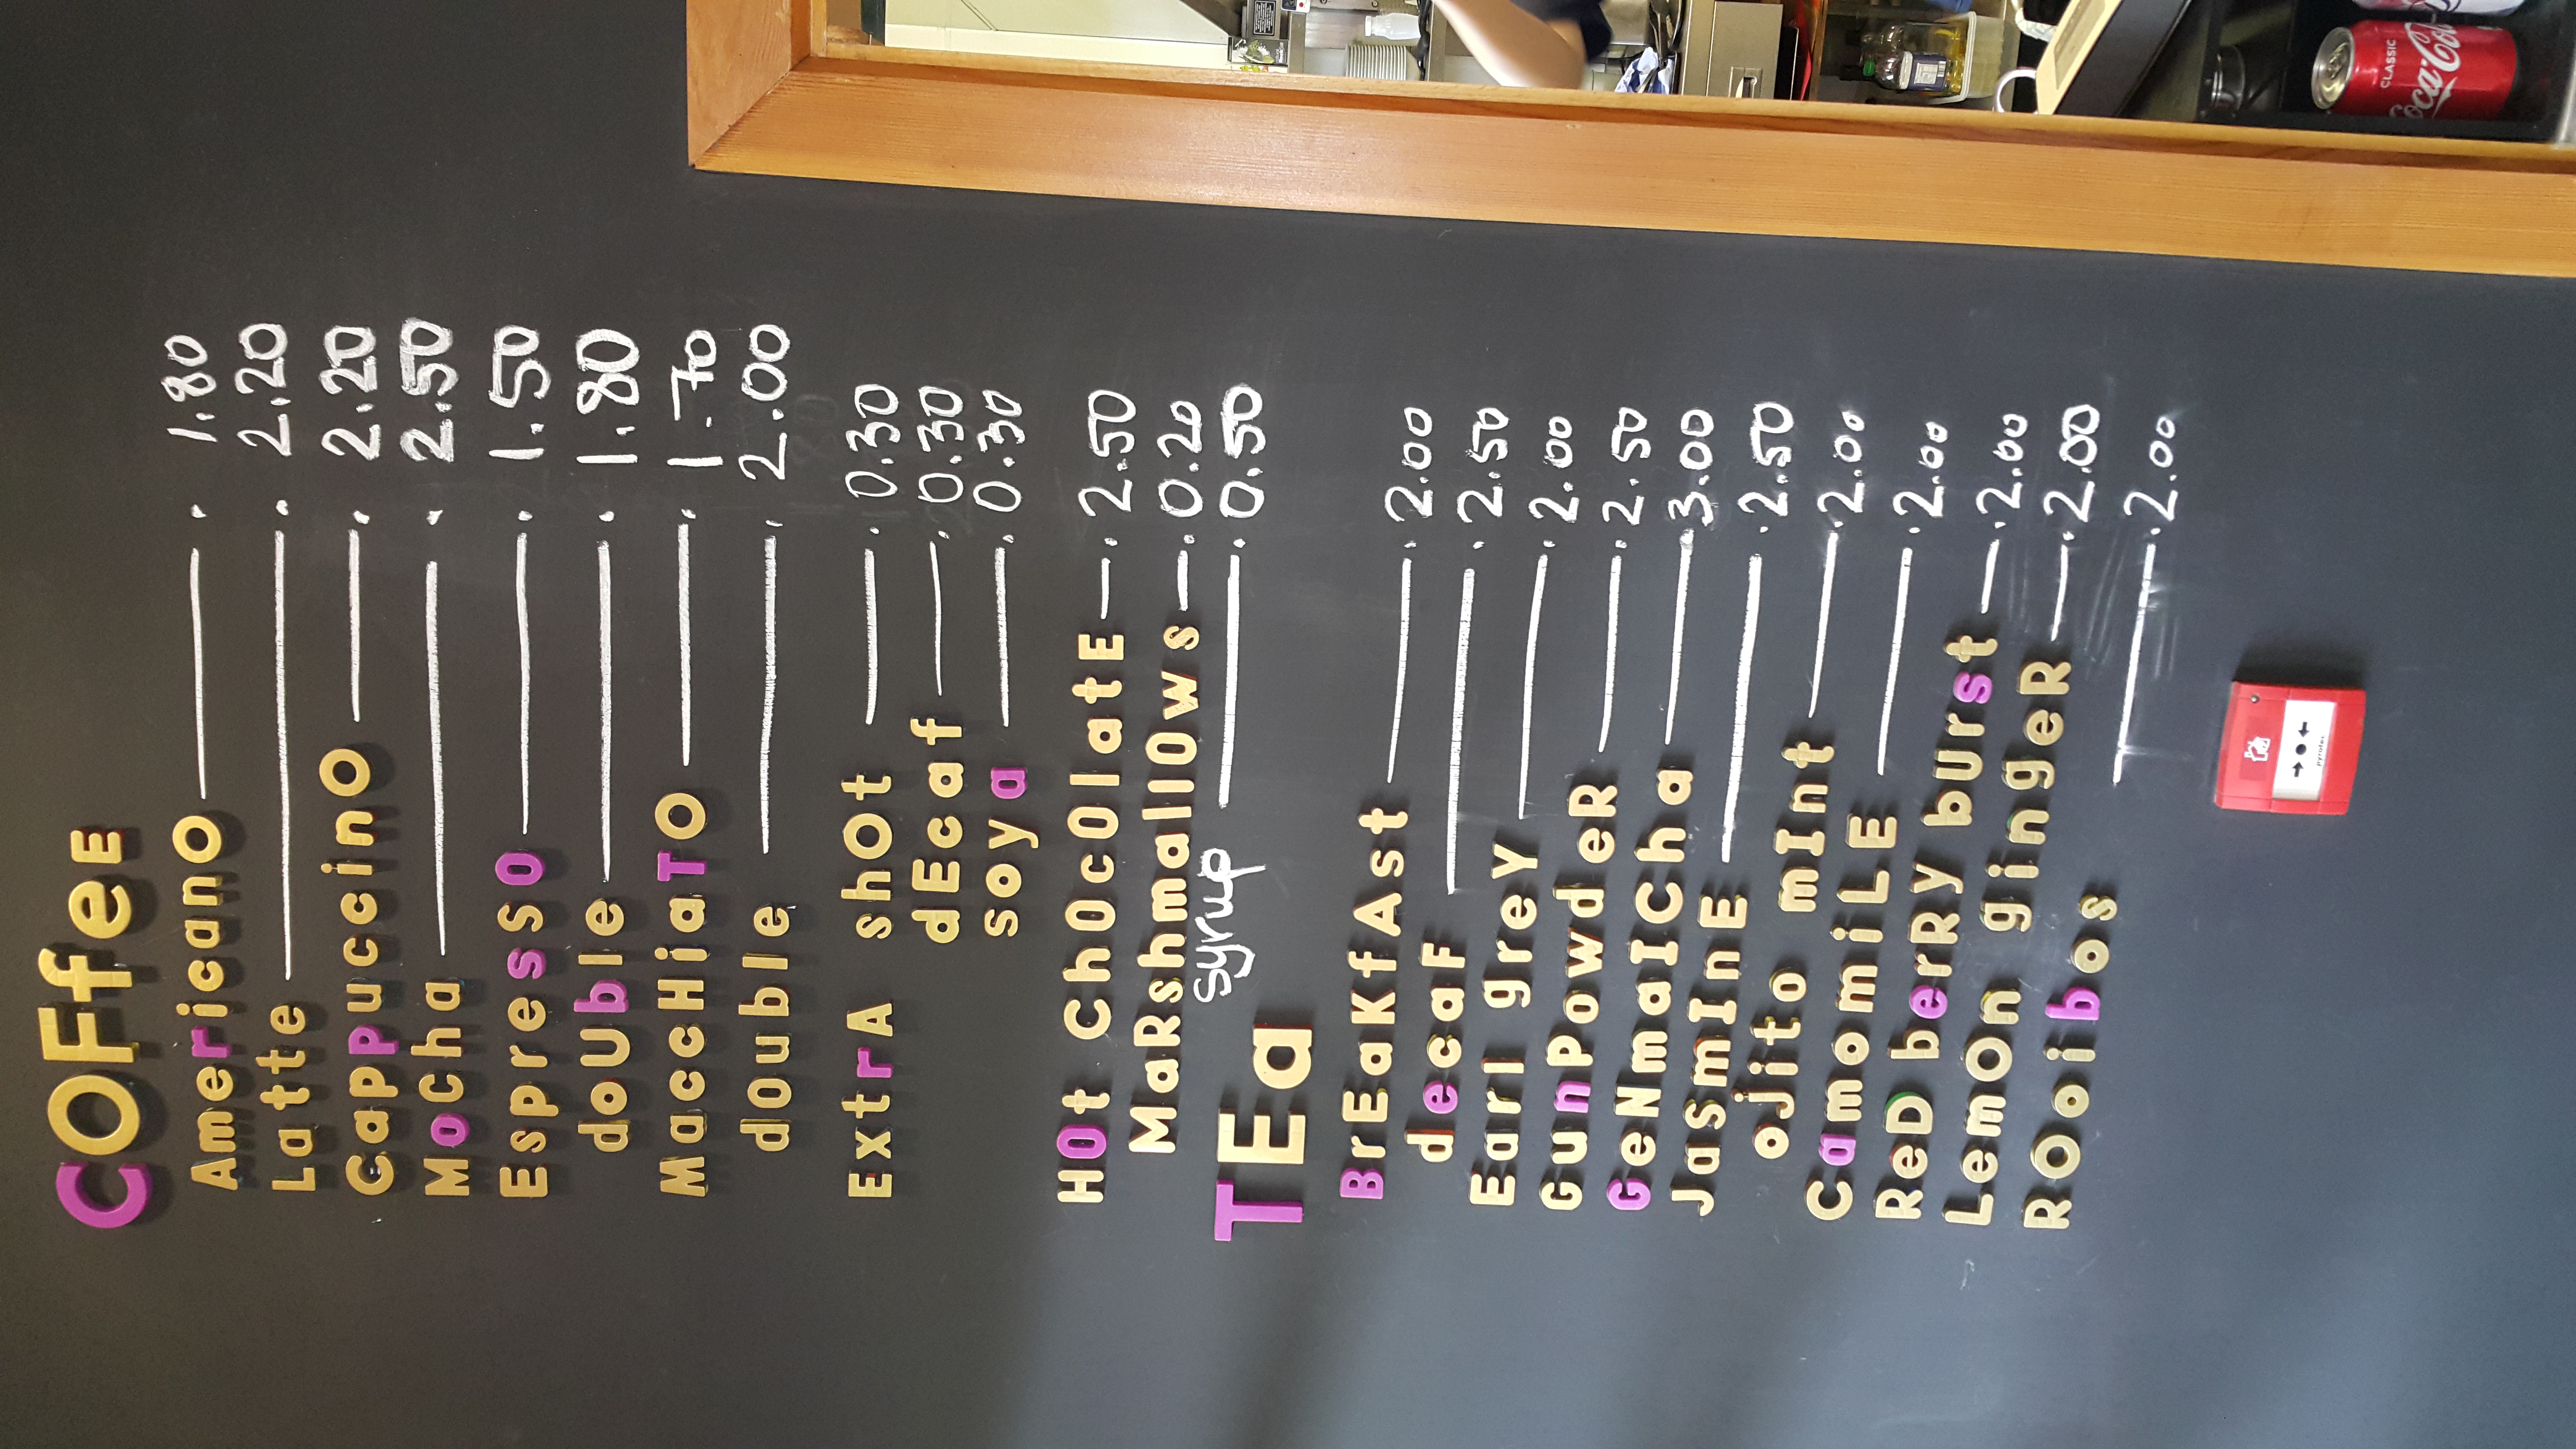 COFfeE
AmericanO 1.80
Latte 2.20
CappuccinO 2.20
MoCha 2.50
EspresSO 1.50
doUble 1.80
MaccHiaTO 1.70
double 2.00
ExtrA shOt 0.30
dEcaf 0.30
soya 0.30
HOt ChOcOlatE 2.50
MaRshmallOws 0.20
syrup 0.50
TEa
BrEaKfAst 2.00
decaF 2.50
Earl greY 2.00
GunPowdeR 2.50
GeNmaICha 3.00
JaSmInE 2.50
ojito mInt 2.00
CamomiLE 2.00
ReD berRY bUrst 2.00
LemOn gingeR 2.00
ROoibos 2.00
CLASSIC